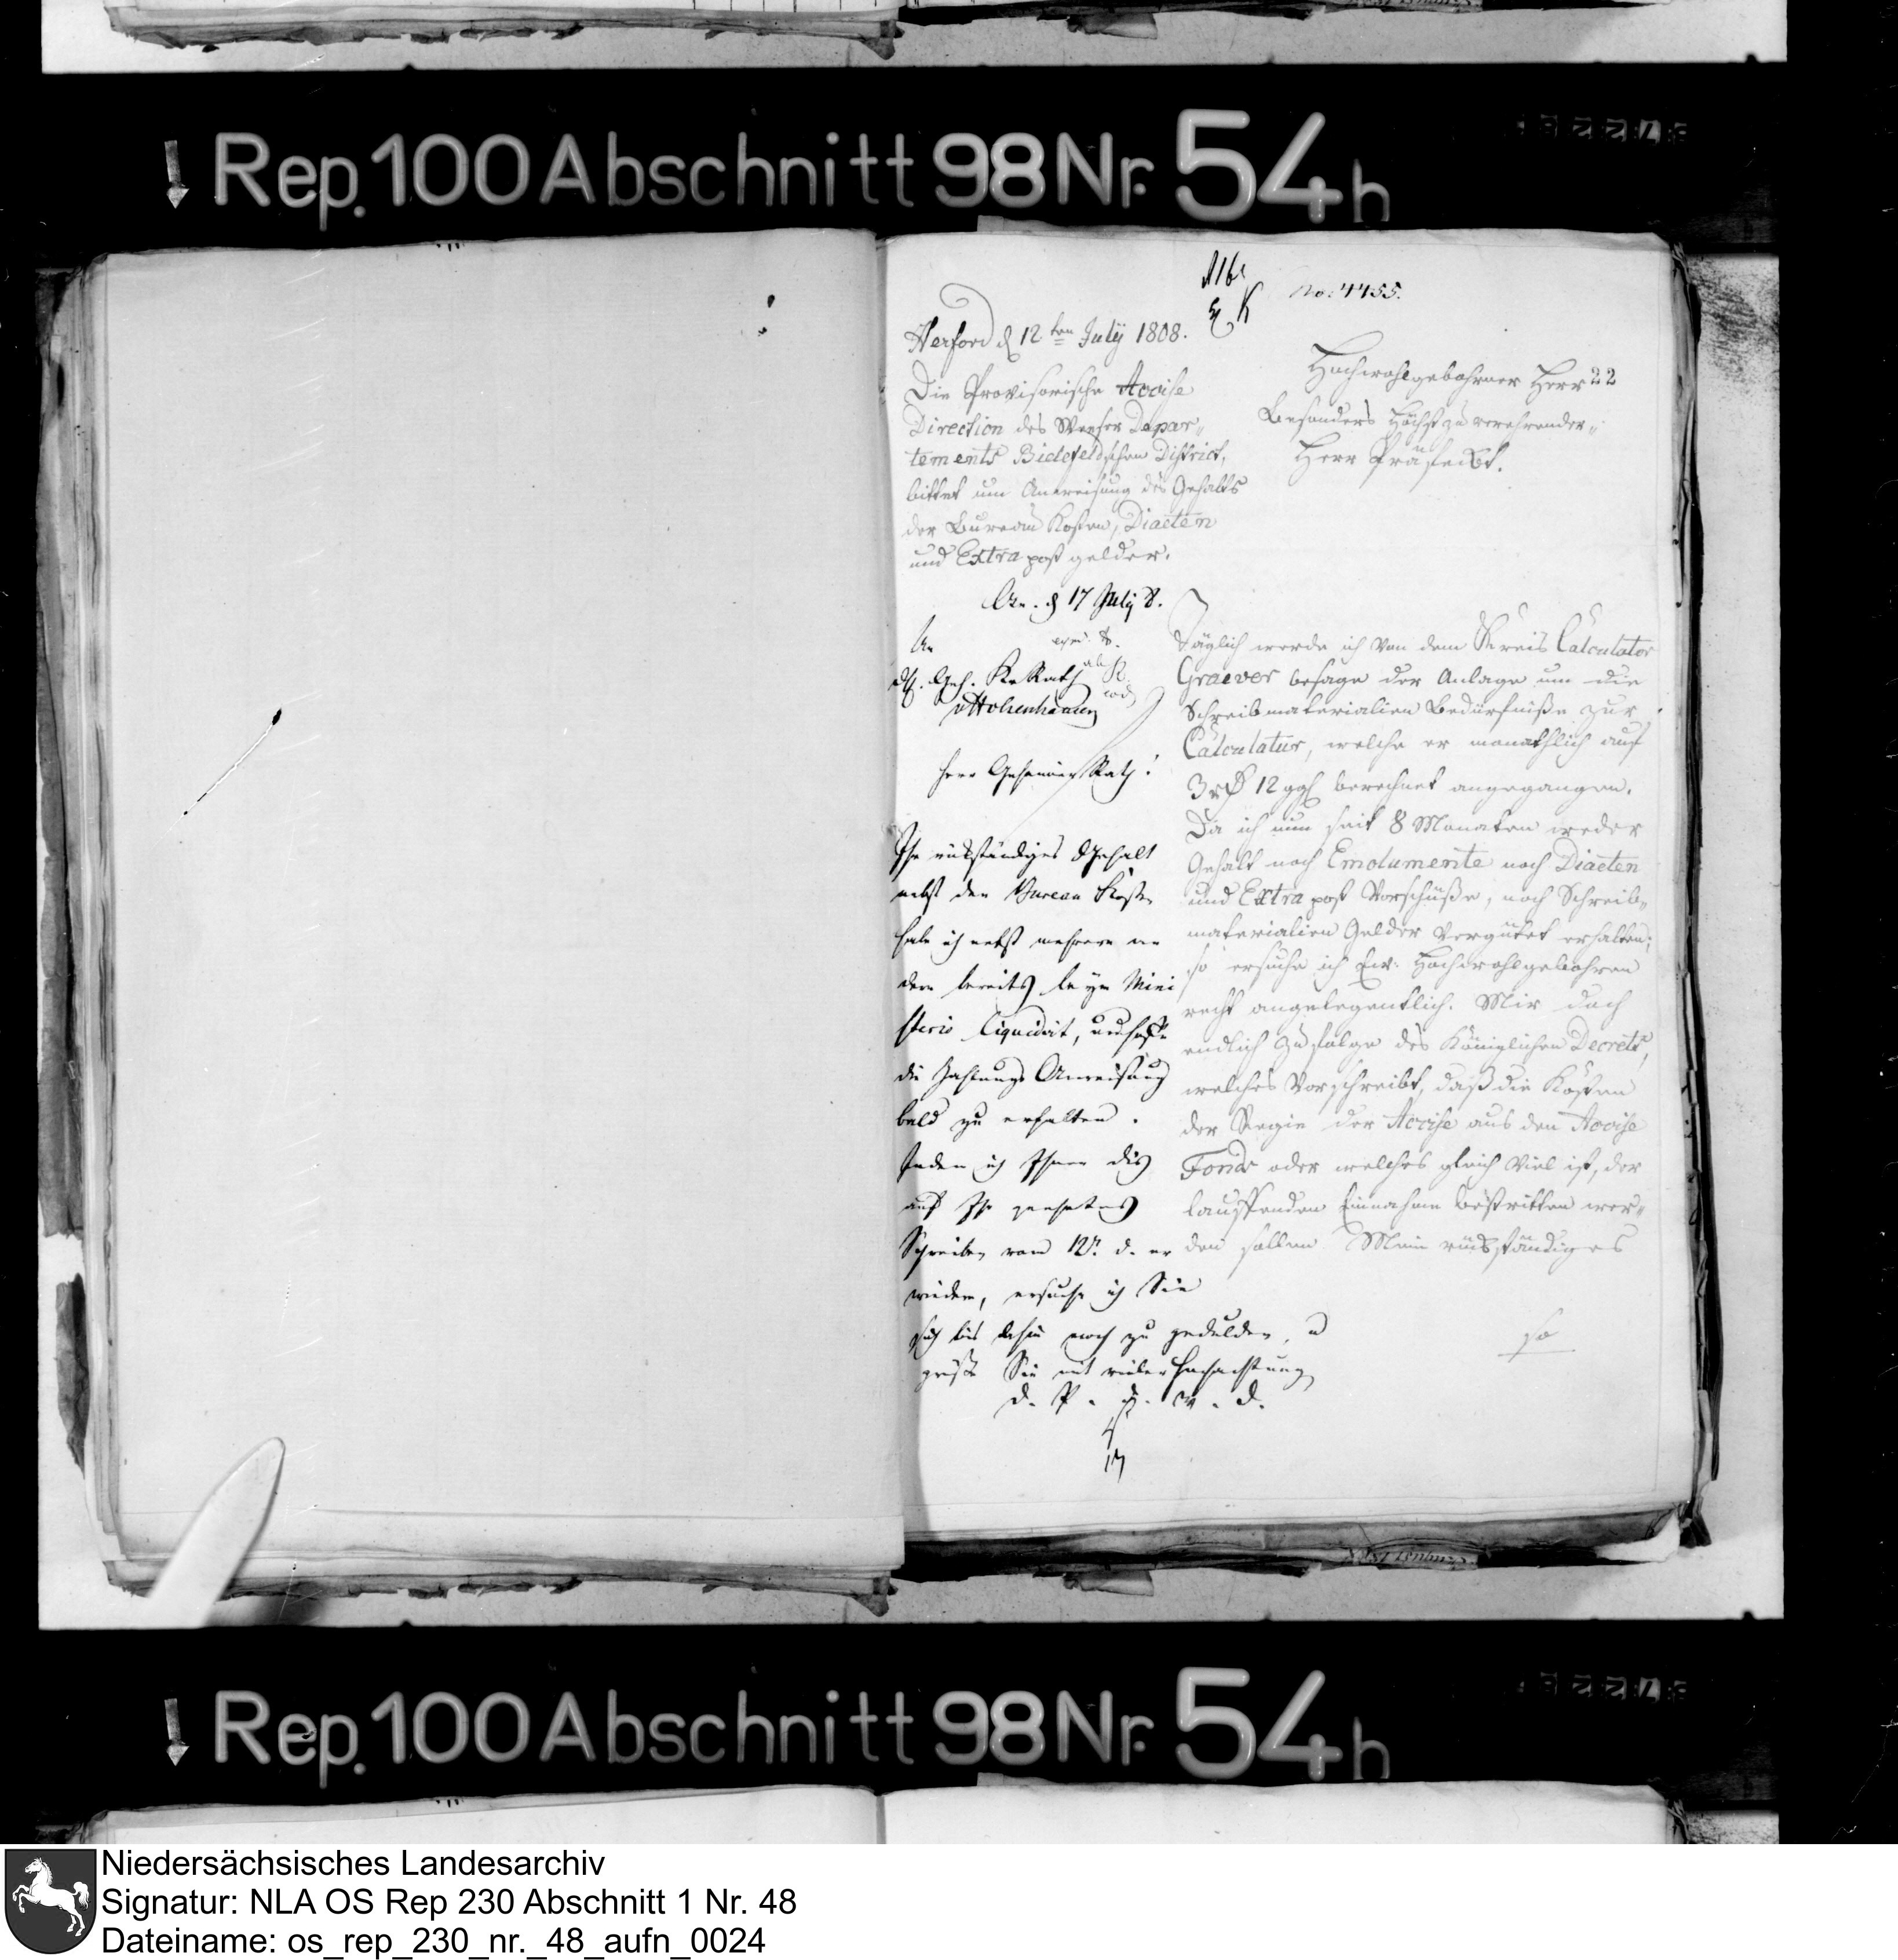 Rep. 100 Abschnitt 98 Nr. 54 h
No: 4455.
Herford d 12ten July 1808.
Die Provisorische Accise
Direction des Weeser Depar„
tements Bielefeldschen District,
bittet um Anweisung des Gehalts
der Bureau Kosten, Diaeten
und Extra post gelder.
Hochwohlgebohrner Herr
22
Besonders Höchst zu verehrender„
Herr Präfeckt.
d 17 July 8.
An
Geh. Kr Rath
v Hohenhausen
Herr Geheimer Rath!
Ihr rükständiges Gehalt
nebst den Bureau Kosten
habe ich nebst mehrern an
dern bereits beym Mini
sterio liquidirt, und hoffe
die Zahlungs Anweisung
bald zu erhalten.
Indem ich Ihnen dis
auf Ihr geehrtes
Schreiben vom 12n d. er
wiedere, ersuche ich Sie
sich bis dahin noch zu gedulden, u
grüße Sie mit vieler Hochachtung
d. P. d. W. D.
17
Täglich werde ich von dem Kreis Calculator
Graever besage der Anlage um die
Schreibmaterialien Bedürfniße zur
Calculatur, welche er monathlich auf
3 rthl 12 ggl berechnet angegangen.
Da ich nun seit 8 Monaten weder
Gehalt noch Emolumente noch Diaeten
und Extra post Vorschüße, noch Schreib„
materialien Gelder vergütet erhalten;
so ersuche ich Ew: Hochwohlgebohren
recht angelegentlich. Mir doch
endlich zufolge des Königlichen Decrets,
welches Vorschreibt, daß die Kosten
der Regie der Accise aus den Accise
Fonds oder welches gleich viel ist, der
lauffenden Einnahme bestritten wer„
den sollen Mein rükständiges
so
Rep. 100 Abschnitt 98 Nr. 54 h
Niedersächsisches Landesarchiv
Signatur: NLA OS Rep 230 Abschnitt 1 Nr. 48
Dateiname: os_rep_230_nr._48_aufn_0024